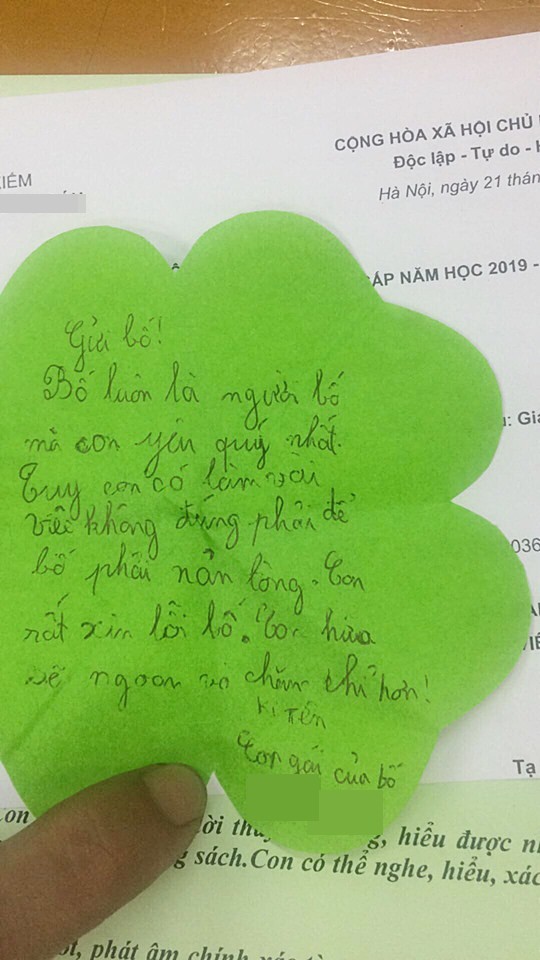 CỘNG HÒA XÃ HỘI CHỦ
Độc lập - Tự do -
Hà Nội, ngày 21 thán
KIẾM
CẤP NĂM HỌC 2019 -
Gửi bố!
Bố luôn là người bố
mà con yêu quý nhất.
Tuy con có làm vài
việc không đứng phải để
bố phải nản lòng. Con
rất xin lỗi bố. Con hứa
sẽ ngoan và chăm chỉ hơn!
Kí tên
Con gái của bố
u: Gia
036
Tạ
on
lời
g, hiểu được
g sách.Con có thể nghe, hiểu, xác
ốt, phát âm chính xác